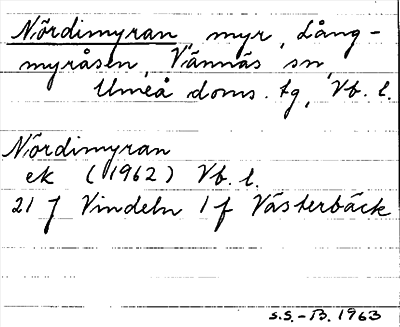 Nördimyran myr, Lång-
myråsen, Vännäs sn,
Umeå doms. tg, Vb. l.
Nördimyran
ek (1962) Vb. l.
21 J Vindeln 1 f Västerbäck
S.S.-B. 1963